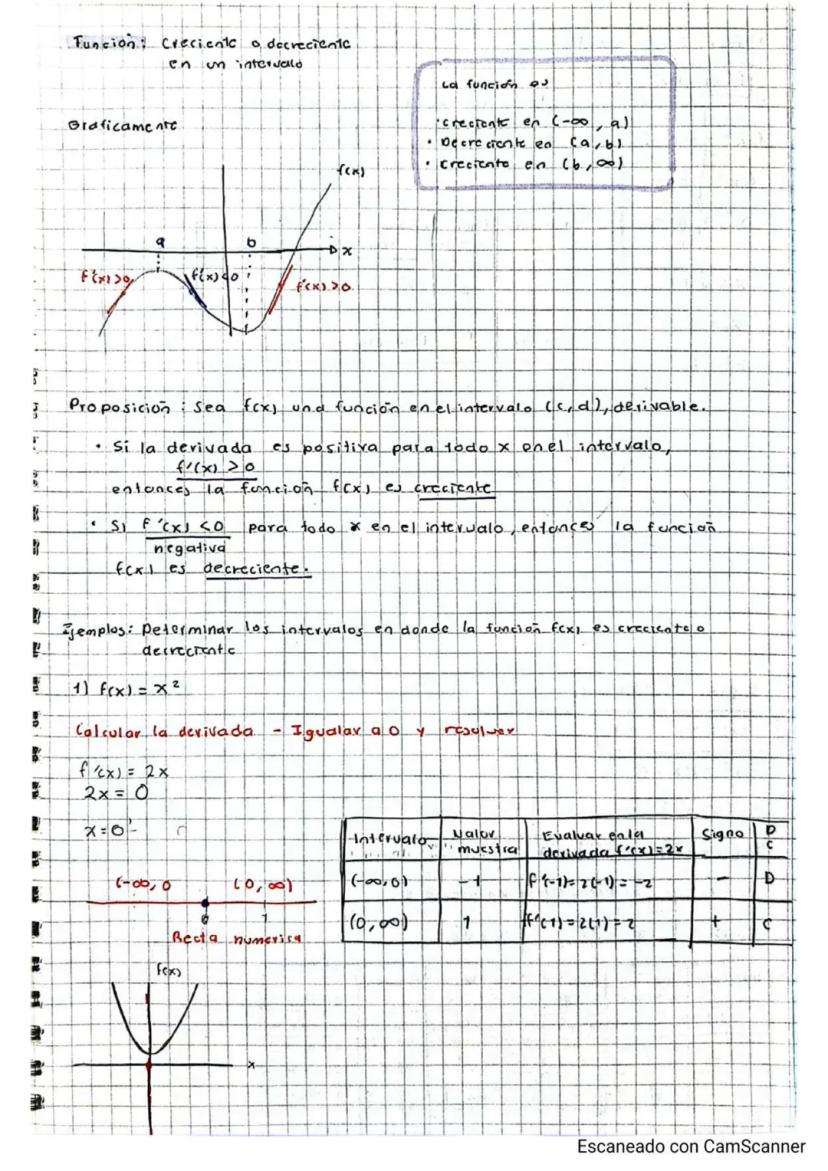 Función: Creciente o decreciente
en un intervalo
La función es
• creciente en (-∞, a)
• Decreciente en (a, b)
• creciente en (b, ∞)
Graficamente
f(x)
a
b
x
f'(x)>0
f'(x)<0
f'(x)>0
Proposición: Sea f(x) una función en el intervalo (c,d), derivable.
• Si la derivada es positiva para todo x en el intervalo,
f'(x) > 0
entonces la función f(x) es creciente
• Si f'(x) < 0 para todo x en el intervalo, entonces la función
negativa
f(x) es decreciente.
Ejemplos: Determinar los intervalos en donde la función f(x) es creciente o
decreciente
1) f(x) = x²
Calcular la derivada - Igualar a 0 y resolver
f'(x) = 2x
2x = 0
x = 0
Intervalo Valor muestra Evaluar en la derivada f'(x)=2x Signo D C
(-∞,0) -1 f'(-1)=2(-1)=-2 - D
(0,∞) 1 f'(1)=2(1)=2 + C
(-∞, 0 (0, ∞)
0 1
Recta numerica
f(x)
x
Escaneado con CamScanner